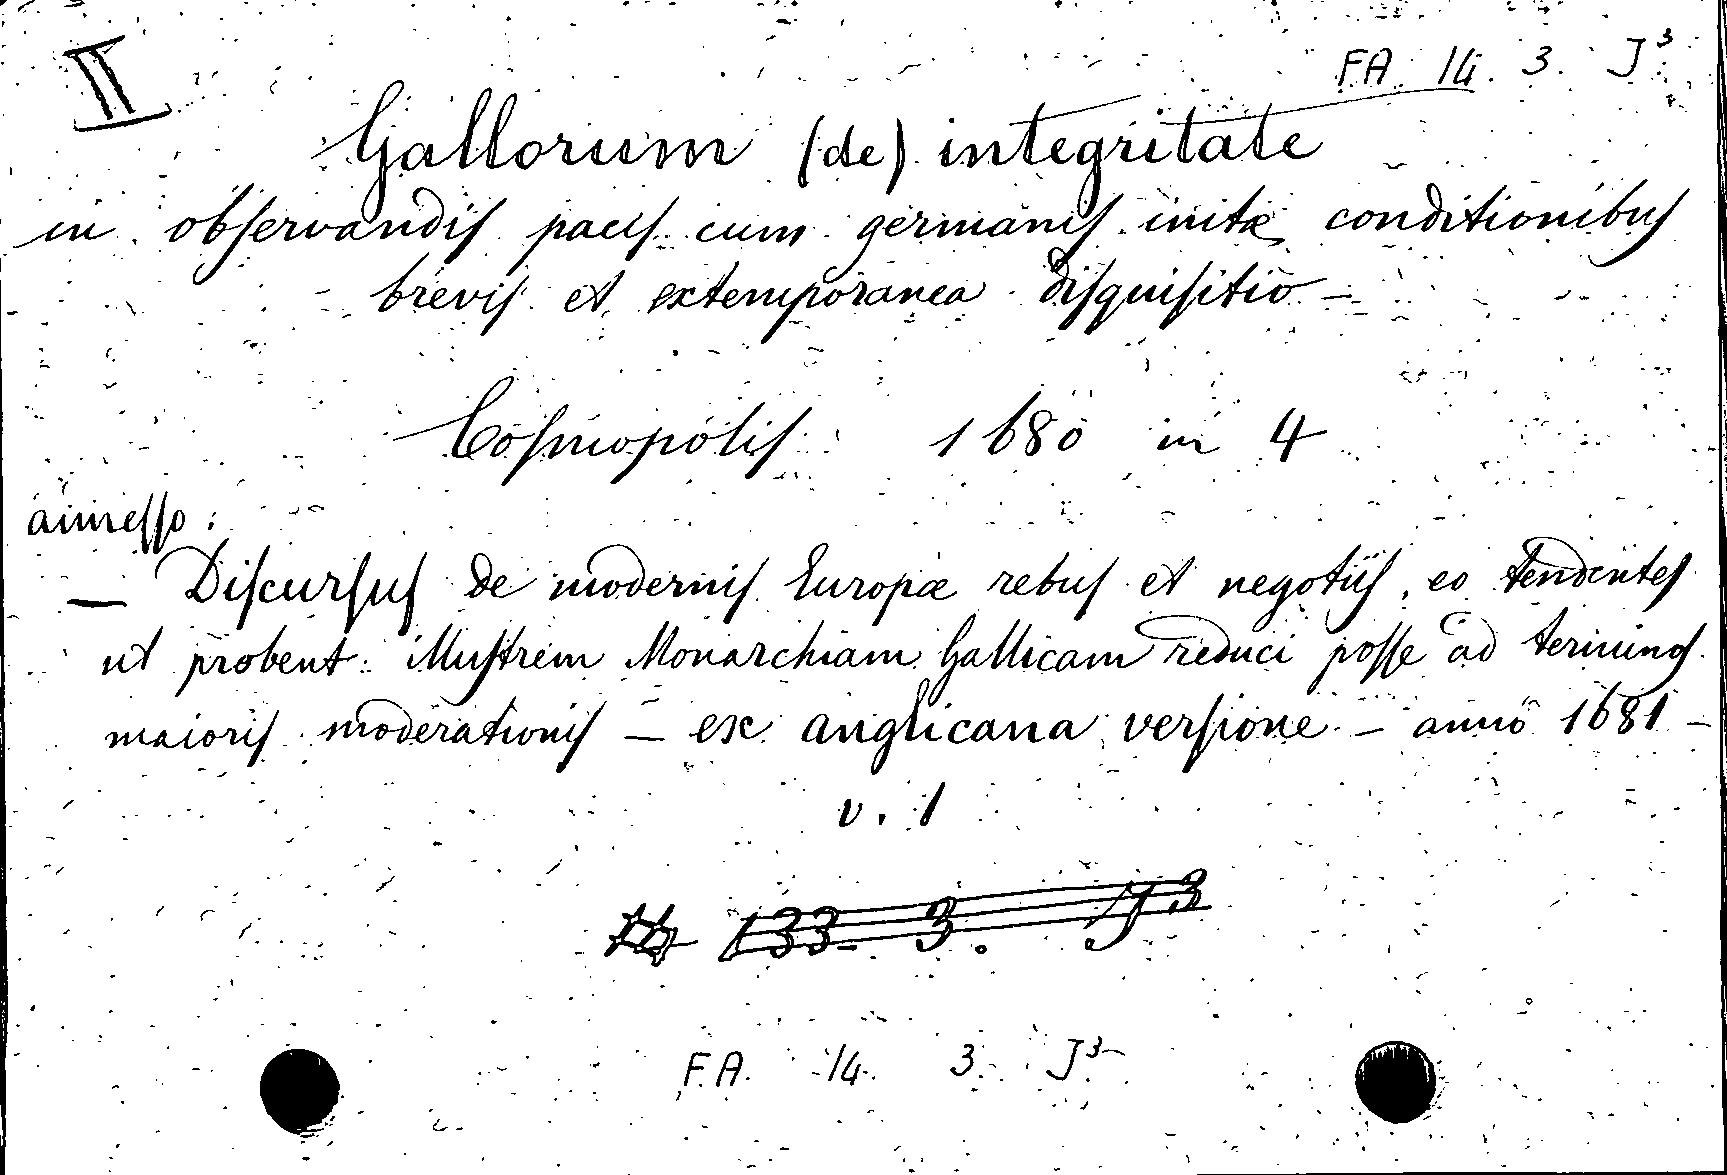 II
F.A. 14. 3. J³
Gallorum (de) integritate
in observandis pacis cum germanis initæ conditionibus
brevis et extemporanea disquisitio –
Cosmopolis 1680 in 4
annesso:
— Discursus de modernis Europæ rebus et negotiis, eo tendentes
ut probent: illustrem Monarchiam Gallicam reduci posse ad terminos
maioris moderationis – ex anglicana versione – anno 1681 –
v. 1
133. 3. J 3
F.A. 14. 3. J³